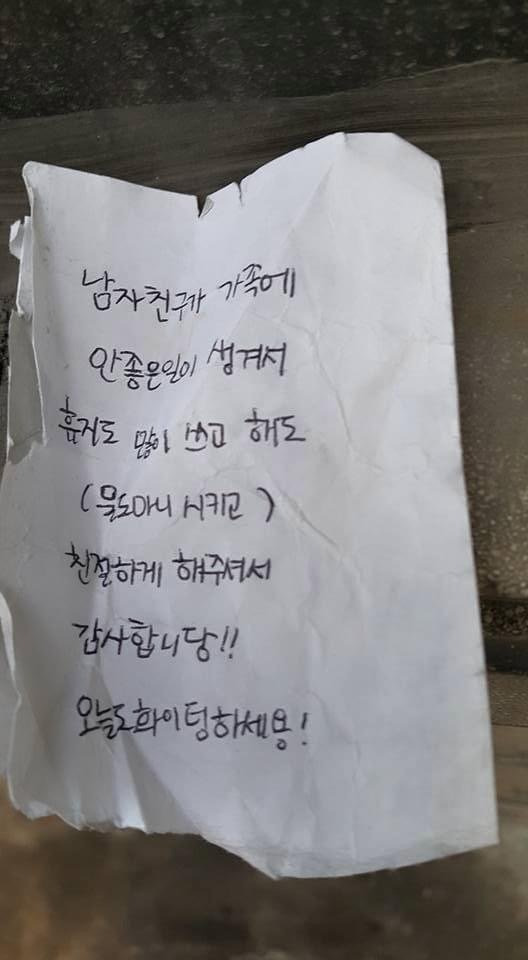 남자친구가 가족에
안좋은일이 생겨서
휴지도 많이 쓰고 해도
(물도마니 시키고)
친절하게 해주셔서
감사합니당!!
오늘도화이팅하세용!